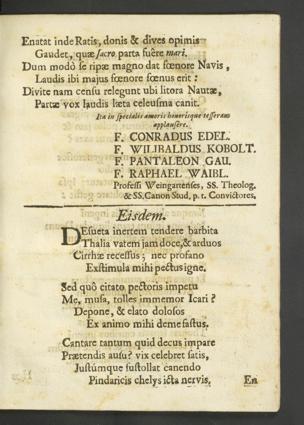 Enatat inde Ratis, donis & dives opimis
Gaudet, quæ sacro parta fuêre mari.
Dum modò se ripæ magno dat fœnore Navis,
Laudis ibi majus fœnore fœnus erit:
Divite nam censu relegunt ubi litora Nautæ,
Partæ vox laudis læta celeusma canit.
Ita in specialis amoris honorisque tesseram
applausêre.
F. CONRADUS EDEL.
F. WILIBALDUS KOBOLT.
F. PANTALEON GAU.
F. RAPHAEL WAIBL.
Professi Weingartenses, SS. Theolog.
& SS. Canon Stud, p. t. Convictores.
Eisdem.
DEsueta inertem tendere barbita
Thalia vatem jam doce, & arduos
Cirrhæ recessus; nec profano
Exstimula mihi pectus igne.
Sed quô citato pectoris impetu
Me, musa, tolles immemor Icari?
Depone, & elato dolosos
Ex animo mihi deme fastus.
Cantare tantum quid decus impare
Prætendis ausu? vix celebret satis,
Justúmque sustollat canendo
Pindaricis chelys icta nervis.
En